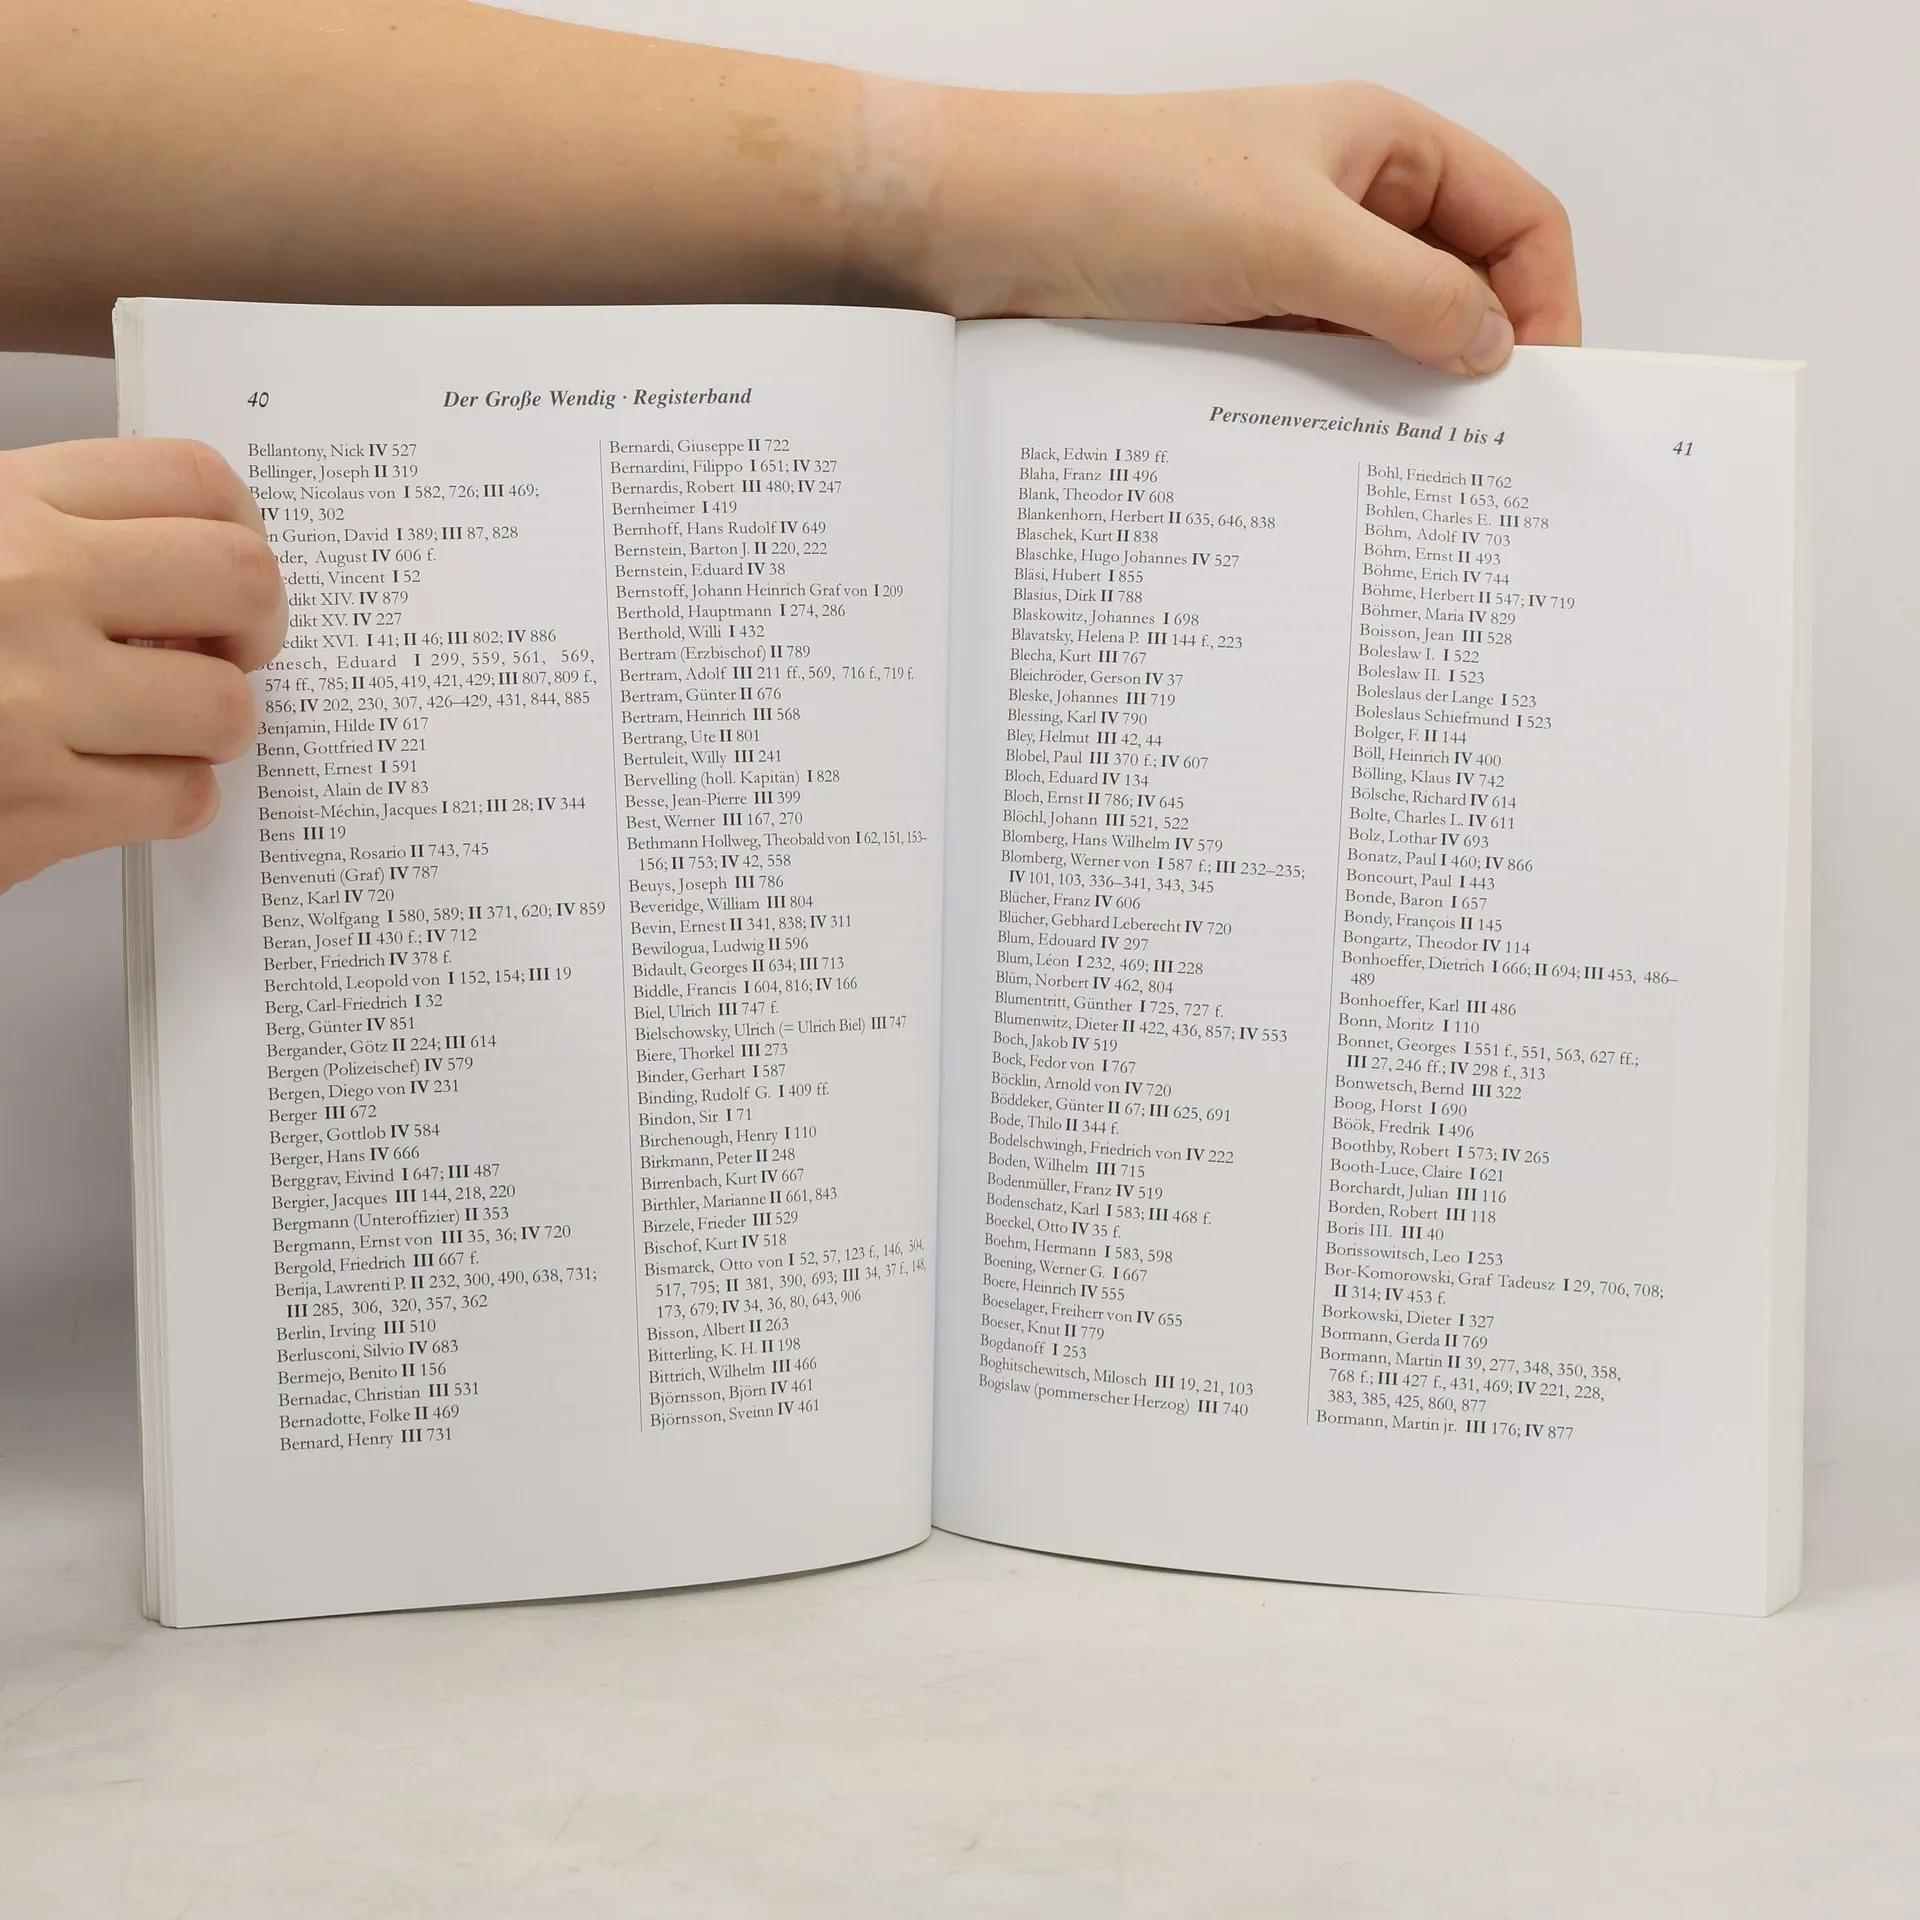 40
Der Große Wendig · Registerband
Bellantony, Nick IV 527
Bellinger, Joseph II 319
Below, Nicolaus von I 582, 726; III 469;
IV 119, 302
Gurion, David I 389; III 87, 828
August IV 606 f.
Vincent I 52
XIV. IV 879
XV. IV 227
XVI. I 41; II 46; III 802; IV 886
Benesch, Eduard I 299, 559, 561, 569,
574 ff., 785; II 405, 419, 421, 429; III 807, 809 f.,
856; IV 202, 230, 307, 426–429, 431, 844, 885
Benjamin, Hilde IV 617
Benn, Gottfried IV 221
Bennett, Ernest I 591
Benoist, Alain de IV 83
Benoist-Méchin, Jacques I 821; III 28; IV 344
Bens III 19
Bentivegna, Rosario II 743, 745
Benvenuti (Graf) IV 787
Benz, Karl IV 720
Benz, Wolfgang I 580, 589; II 371, 620; IV 859
Beran, Josef II 430 f.; IV 712
Berber, Friedrich IV 378 f.
Berchtold, Leopold von I 152, 154; III 19
Berg, Carl-Friedrich I 32
Berg, Günter IV 851
Bergander, Götz II 224; III 614
Bergen (Polizeischef) IV 579
Bergen, Diego von IV 231
Berger III 672
Berger, Gottlob IV 584
Berger, Hans IV 666
Berggrav, Eivind I 647; III 487
Bergier, Jacques III 144, 218, 220
Bergmann (Unteroffizier) II 353
Bergmann, Ernst von III 35, 36; IV 720
Bergold, Friedrich III 667 f.
Berija, Lawrenti P. II 232, 300, 490, 638, 731;
III 285, 306, 320, 357, 362
Berlin, Irving III 510
Berlusconi, Silvio IV 683
Bermejo, Benito II 156
Bernadac, Christian III 531
Bernadotte, Folke II 469
Bernard, Henry III 731
Bernardi, Giuseppe II 722
Bernardini, Filippo I 651; IV 327
Bernardis, Robert III 480; IV 247
Bernheimer I 419
Bernhoff, Hans Rudolf IV 649
Bernstein, Barton J. II 220, 222
Bernstein, Eduard IV 38
Bernstoff, Johann Heinrich Graf von I 209
Berthold, Hauptmann I 274, 286
Berthold, Willi I 432
Bertram (Erzbischof) II 789
Bertram, Adolf III 211 ff., 569, 716 f., 719 f.
Bertram, Günter II 676
Bertram, Heinrich III 568
Bertrang, Ute II 801
Bertuleit, Willy III 241
Bervelling (holl. Kapitän) I 828
Besse, Jean-Pierre III 399
Best, Werner III 167, 270
Bethmann Hollweg, Theobald von I 62, 151, 153–
156; II 753; IV 42, 558
Beuys, Joseph III 786
Beveridge, William III 804
Bevin, Ernest II 341, 838; IV 311
Bewilogua, Ludwig II 596
Bidault, Georges II 634; III 713
Biddle, Francis I 604, 816; IV 166
Biel, Ulrich III 747 f.
Bielschowsky, Ulrich (= Ulrich Biel) III 747
Biere, Thorkel III 273
Binder, Gerhart I 587
Binding, Rudolf G. I 409 ff.
Bindon, Sir I 71
Birchenough, Henry I 110
Birkmann, Peter II 248
Birrenbach, Kurt IV 667
Birthler, Marianne II 661, 843
Birzele, Frieder III 529
Bischof, Kurt IV 518
Bismarck, Otto von I 52, 57, 123 f., 146, 504,
517, 795; II 381, 390, 693; III 34, 37 f., 148,
173, 679; IV 34, 36, 80, 643, 906
Bisson, Albert II 263
Bitterling, K. H. II 198
Bittrich, Wilhelm III 466
Björnsson, Björn IV 461
Björnsson, Sveinn IV 461
Personenverzeichnis Band 1 bis 4
41
Black, Edwin I 389 ff.
Blaha, Franz III 496
Blank, Theodor IV 608
Blankenhorn, Herbert II 635, 646, 838
Blaschek, Kurt II 838
Blaschke, Hugo Johannes IV 527
Bläsi, Hubert I 855
Blasius, Dirk II 788
Blaskowitz, Johannes I 698
Blavatsky, Helena P. III 144 f., 223
Blecha, Kurt III 767
Bleichröder, Gerson IV 37
Bleske, Johannes III 719
Blessing, Karl IV 790
Bley, Helmut III 42, 44
Blobel, Paul III 370 f.; IV 607
Bloch, Eduard IV 134
Bloch, Ernst II 786; IV 645
Blöchl, Johann III 521, 522
Blomberg, Hans Wilhelm IV 579
Blomberg, Werner von I 587 f.; III 232–235;
IV 101, 103, 336–341, 343, 345
Blücher, Franz IV 606
Blücher, Gebhard Leberecht IV 720
Blum, Edouard IV 297
Blum, Léon I 232, 469; III 228
Blüm, Norbert IV 462, 804
Blumentritt, Günther I 725, 727 f.
Blumenwitz, Dieter II 422, 436, 857; IV 553
Boch, Jakob IV 519
Bock, Fedor von I 767
Böcklin, Arnold von IV 720
Böddeker, Günter II 67; III 625, 691
Bode, Thilo II 344 f.
Bodelschwingh, Friedrich von IV 222
Boden, Wilhelm III 715
Bodenmüller, Franz IV 519
Bodenschatz, Karl I 583; III 468 f.
Boeckel, Otto IV 35 f.
Boehm, Hermann I 583, 598
Boening, Werner G. I 667
Boere, Heinrich IV 555
Boeselager, Freiherr von IV 655
Boeser, Knut II 779
Bogdanoff I 253
Boghitschewitsch, Milosch III 19, 21, 103
Bogislaw (pommerscher Herzog) III 740
Bohl, Friedrich II 762
Bohle, Ernst I 653, 662
Bohlen, Charles E. III 878
Böhm, Adolf IV 703
Böhm, Ernst II 493
Böhme, Erich IV 744
Böhme, Herbert II 547; IV 719
Böhmer, Maria IV 829
Boisson, Jean III 528
Boleslaw I. I 522
Boleslaw II. I 523
Boleslaus der Lange I 523
Boleslaus Schiefmund I 523
Bolger, F. II 144
Böll, Heinrich IV 400
Bölling, Klaus IV 742
Bölsche, Richard IV 614
Bolte, Charles L. IV 611
Bolz, Lothar IV 693
Bonatz, Paul I 460; IV 866
Boncourt, Paul I 443
Bonde, Baron I 657
Bondy, François II 145
Bongartz, Theodor IV 114
Bonhoeffer, Dietrich I 666; II 694; III 453, 486–
489
Bonhoeffer, Karl III 486
Bonn, Moritz I 110
Bonnet, Georges I 551 f., 551, 563, 627 ff.;
III 27, 246 ff.; IV 298 f., 313
Bonwetsch, Bernd III 322
Boog, Horst I 690
Böök, Fredrik I 496
Boothby, Robert I 573; IV 265
Booth-Luce, Claire I 621
Borchardt, Julian III 116
Borden, Robert III 118
Boris III. III 40
Borissowitsch, Leo I 253
Bor-Komorowski, Graf Tadeusz I 29, 706, 708;
II 314; IV 453 f.
Borkowski, Dieter I 327
Bormann, Gerda II 769
Bormann, Martin II 39, 277, 348, 350, 358,
768 f.; III 427 f., 431, 469; IV 221, 228,
383, 385, 425, 860, 877
Bormann, Martin jr. III 176; IV 877